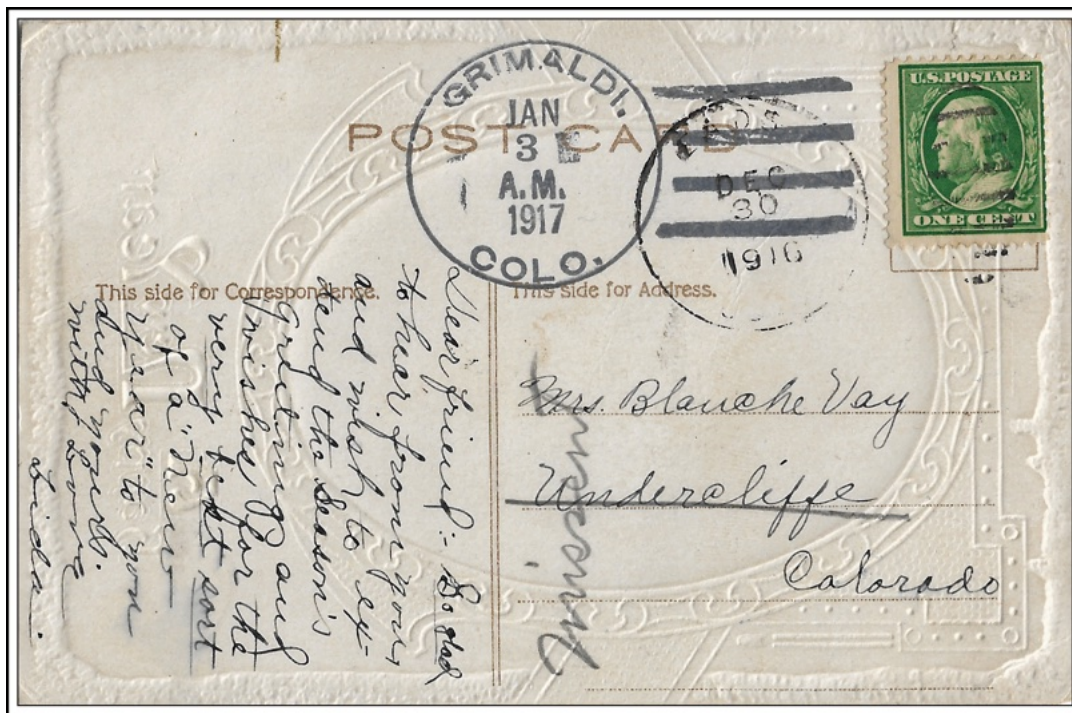 POST CARD
GRIMALDI.
JAN
3
A.M.
1917
COLO.
EADS
DEC
30
1916
U.S.POSTAGE
ONE CENT
This side for Correspondence.
This side for Address.
Dear friend:- So glad
to hear from you,
and wish to ex-
tend the Season's
Greetings and
wishes for the
very best sort
of a "New
Year" to you
and yours.
with Love
Lida.
Mrs. Blanche Vay
Undercliffe
Colorado
Missent